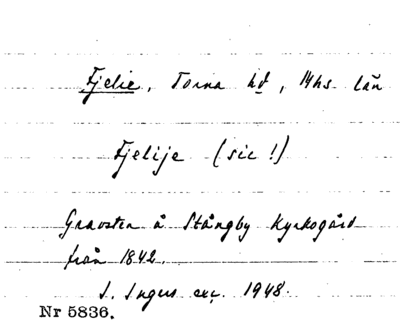 Fjelie, Torna hd, Mhs län
Fjelije (sic!)
Gravsten å Stångby kyrkogård
från 1842.
I. Ingers exc. 1948.
Nr 5836.